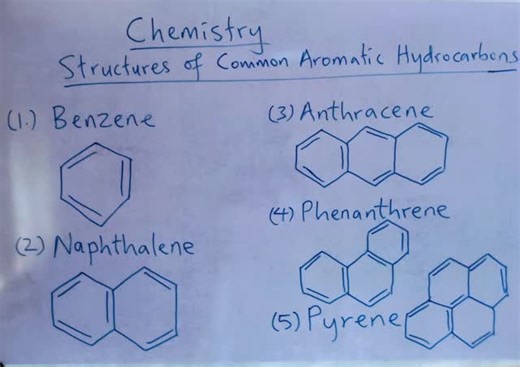 Chemistry
Structures of Common Aromatic Hydrocarbons
(1.) Benzene
(2) Naphthalene
(3) Anthracene
(4) Phenanthrene
(5) Pyrene